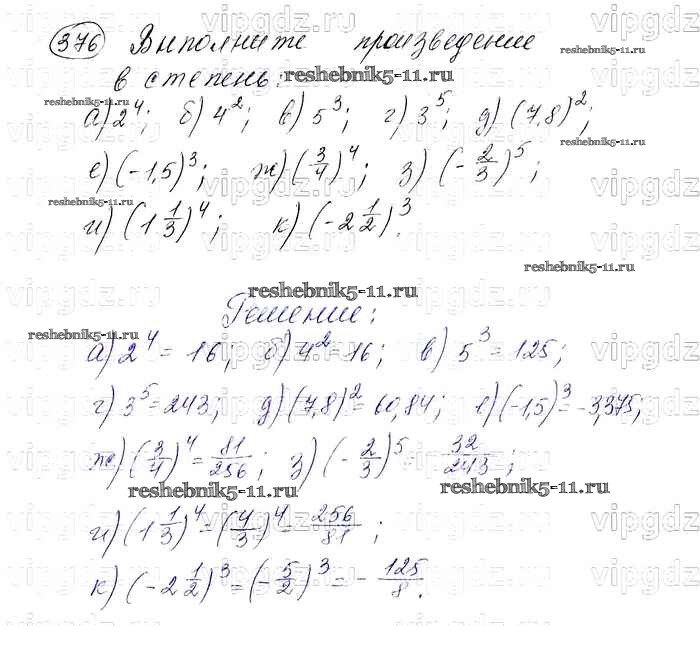 376 Выполните произведение
в степень:
а) 2^4; б) 4^2; в) 5^3; г) 3^5; д) (7,8)^2;
е) (-1,5)^3; ж) (3/4)^4; з) (-2/3)^5;
и) (1 1/3)^4; к) (-2 1/2)^3.
Решение:
а) 2^4 = 16; б) 4^2 = 16; в) 5^3 = 125;
г) 3^5 = 243; д) (7,8)^2 = 60,84; е) (-1,5)^3 = -3,375;
ж) (3/4)^4 = 81/256; з) (-2/3)^5 = - 32/243;
и) (1 1/3)^4 = (4/3)^4 = 256/81;
к) (-2 1/2)^3 = (-5/2)^3 = - 125/8.
reshebnik5-11.ru
vipgdz.ru